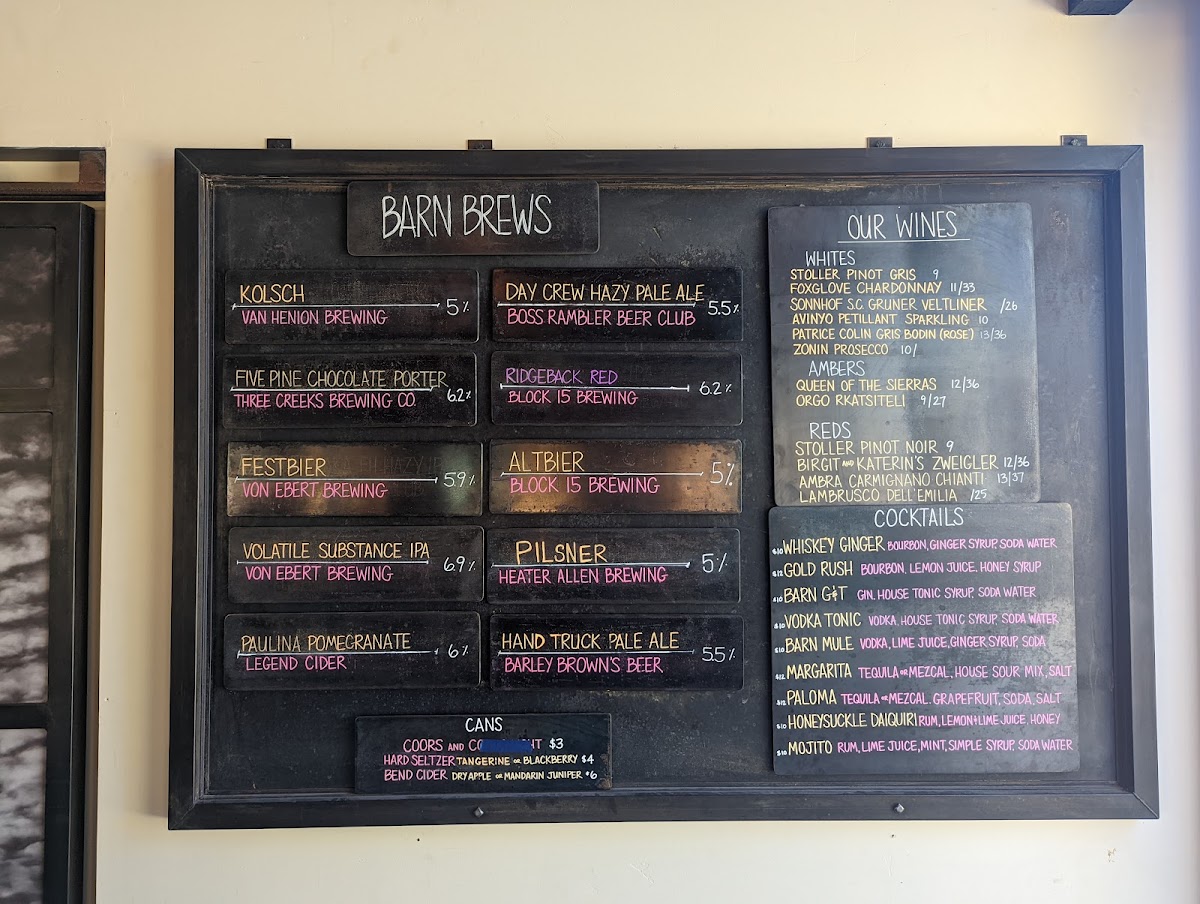 BARN BREWS
KOLSCH
5%
VAN HENION BREWING
FIVE PINE CHOCOLATE PORTER
6.2%
THREE CREEKS BREWING CO.
FESTBIER
5.9%
VON EBERT BREWING
VOLATILE SUBSTANCE IPA
6.9%
VON EBERT BREWING
PAULINA POMEGRANATE
6%
LEGEND CIDER
DAY CREW HAZY PALE ALE
5.5%
BOSS RAMBLER BEER CLUB
RIDGEBACK RED
6.2%
BLOCK 15 BREWING
ALTBIER
5%
BLOCK 15 BREWING
PILSNER
5%
HEATER ALLEN BREWING
HAND TRUCK PALE ALE
5.5%
BARLEY BROWN'S BEER
CANS
COORS AND $3
HARD SELTZER TANGERINE OR BLACKBERRY $4
BEND CIDER DRY APPLE OR MANDARIN JUNIPER $6
OUR WINES
WHITES
STOLLER PINOT GRIS 9
FOXGLOVE CHARDONNAY 11/33
SONNHOF S.C. GRUNER VELTLINER /26
AVINYO PETILLANT SPARKLING 10
PATRICE COLIN GRIS BODIN (ROSÉ) 13/36
ZONIN PROSECCO 10/
AMBERS
QUEEN OF THE SIERRAS 12/36
ORGO RKATSITELI 9/27
REDS
STOLLER PINOT NOIR 9
BIRGIT AND KATERIN'S ZWEIGLER 12/36
AMBRA CARMIGNANO CHIANTI 13/37
LAMBRUSCO DELL'EMILIA /25
COCKTAILS
$10 WHISKEY GINGER BOURBON, GINGER SYRUP, SODA WATER
$12 GOLD RUSH BOURBON, LEMON JUICE, HONEY SYRUP
$10 BARN G&T GIN, HOUSE TONIC SYRUP, SODA WATER
$10 VODKA TONIC VODKA, HOUSE TONIC SYRUP, SODA WATER
$10 BARN MULE VODKA, LIME JUICE, GINGER SYRUP, SODA
$12 MARGARITA TEQUILA OR MEZCAL, HOUSE SOUR MIX, SALT
$12 PALOMA TEQUILA OR MEZCAL, GRAPEFRUIT, SODA, SALT
$10 HONEYSUCKLE DAIQUIRI RUM, LEMON+LIME JUICE, HONEY
$10 MOJITO RUM, LIME JUICE, MINT, SIMPLE SYRUP, SODA WATER